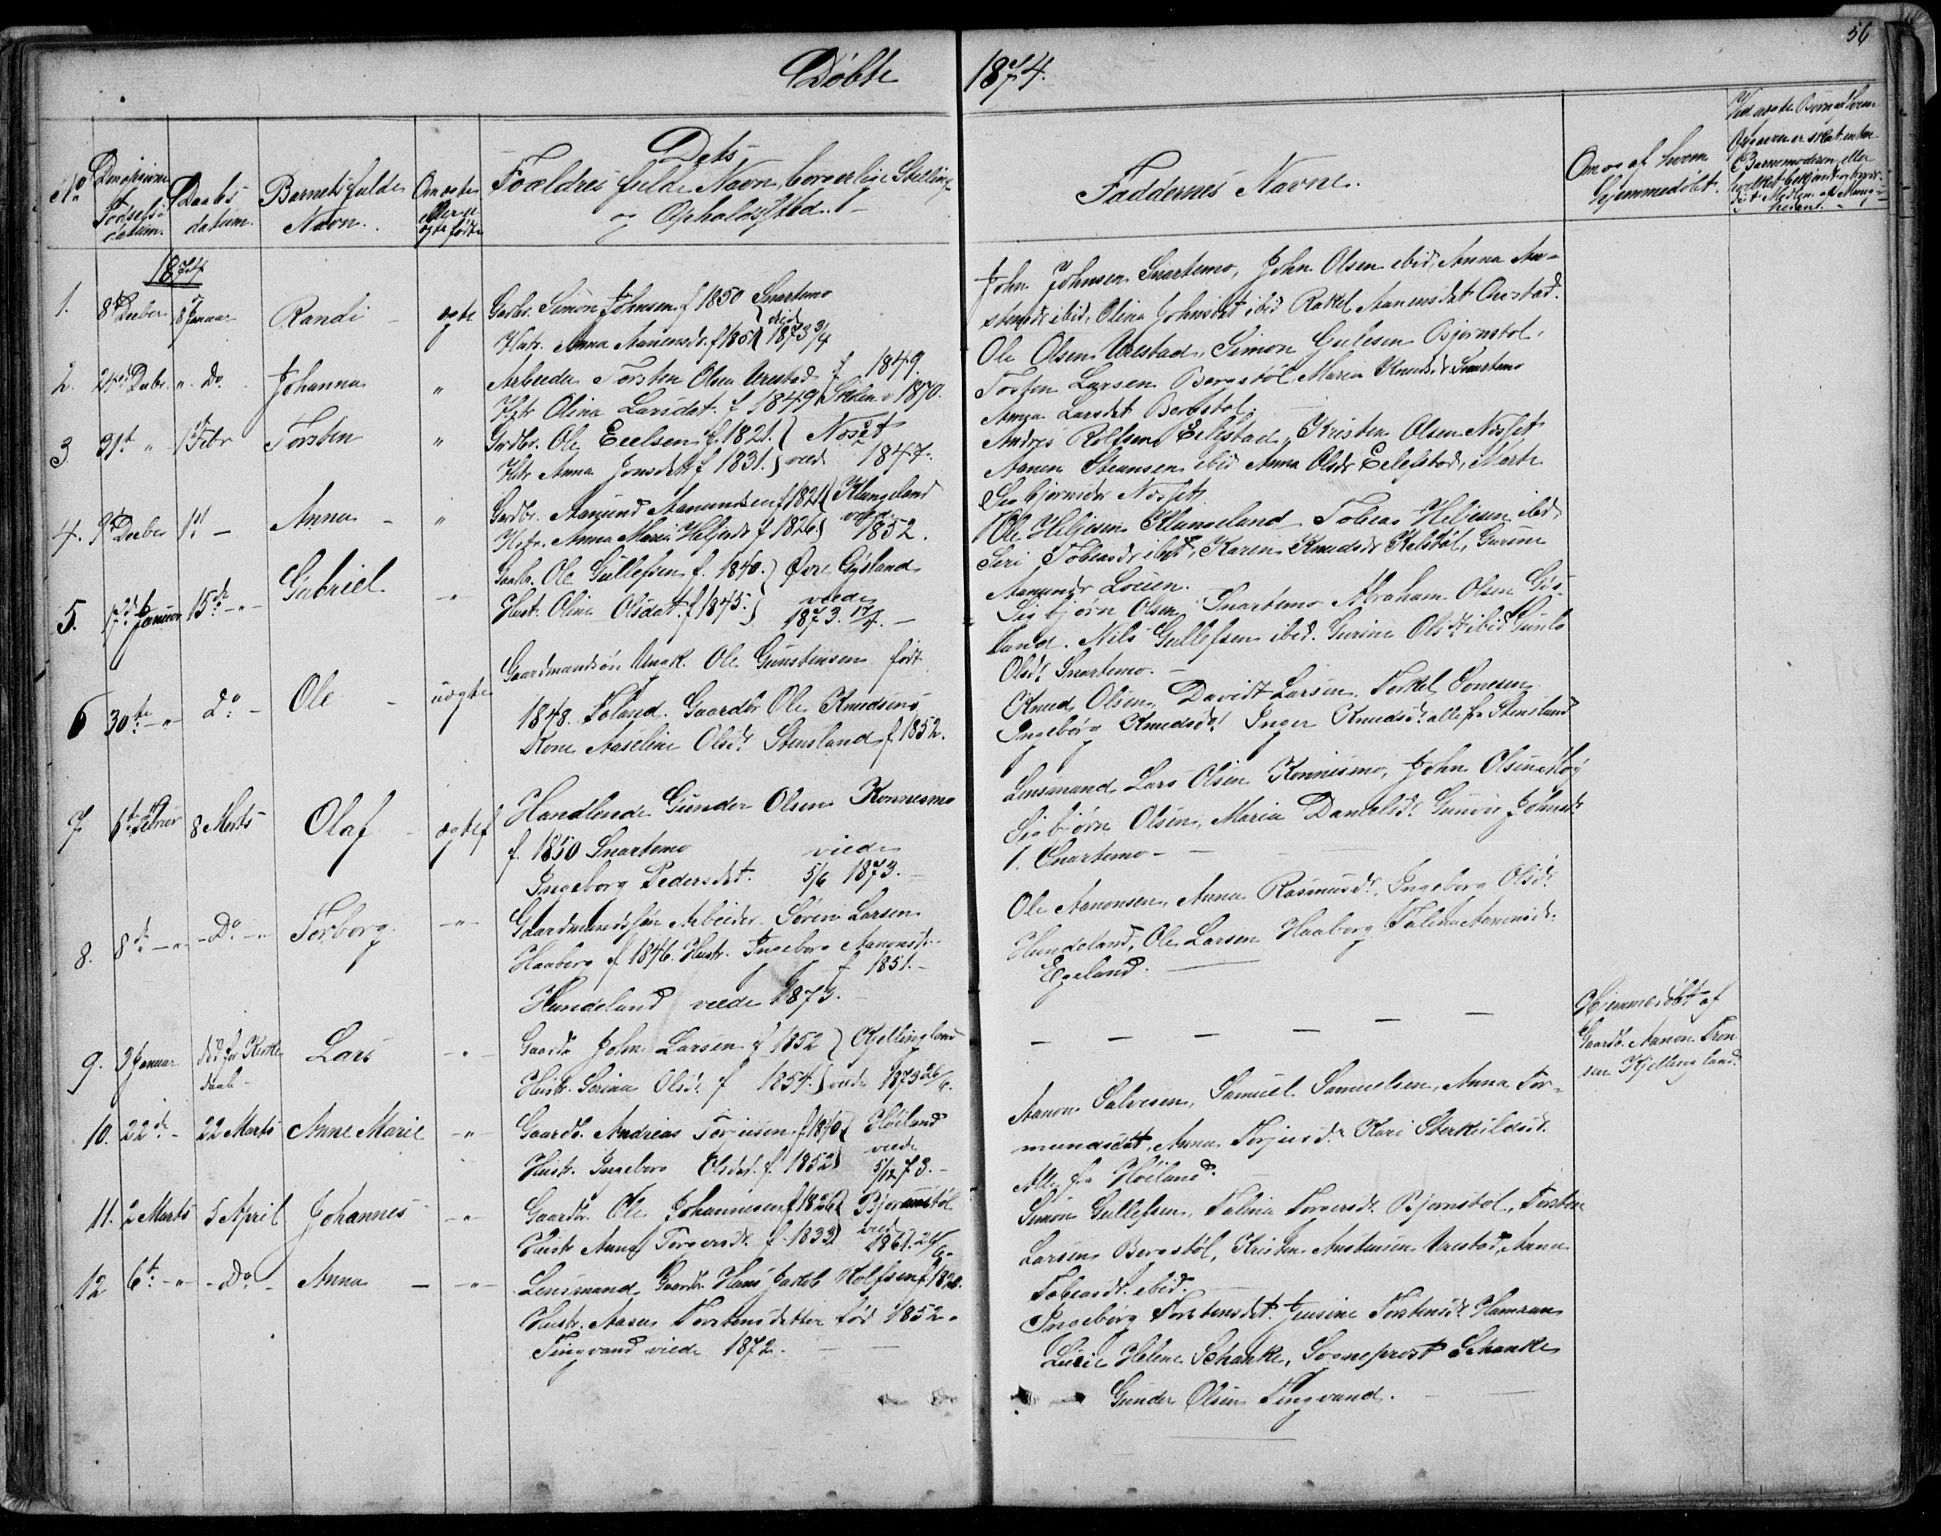 56
Døbte 1874.
No
Døbefødte
Fødsels-
datum.
Daabs
datum.
Barnets fulde
Navn.
Om ægte
eller u-
ægte født
Dets
Forældres fulde Navn, borgerlige Stilling
og Opholdssted.
Faddernes Navne.
Om og af hvem
hjemmedøbt.
1874
1. 8de Decber 18 Januar Randi ægte
Gardbr. Simon Johnsen f 1850 Snartemo
Hstr. Anna Aanensdr. f 1850 viede 1873 3/4
John Johnsen Snartemo, John Olsen ibid, Anna
ibid, Olina Johnsdat ibid Rakel Aanensdat
2. 24de Decbr. " Do. Johanna "
Arbeider Torsten Olsen Urestad f 1849.
Hstr Olina Larsdat. f 1849 1870.
Ole Olsen Urestad, Simon Gulesen Bjørnstøl,
Tosten Larsen Bergstøl Maria Knudsdr Snartemo
Larsdat Bergstøl.
3 31te " 1 Febr Torsten "
Grdbr. Ole Eielsen f. 1821. } Noset
Hstr Anna Jonsdatt f 1831. } viede 1847.
Andres Rolfsen Eilestad, Kristen Olsen Nosset
Aanen Steansen ibid Anna Olsdr Eilefstad, Merte
Sigbjørnsdr Nosset
4. 9de Decber 1" - Anna - "
Gardbr. Aanund Aanundsen f 1821 } Klungeland
Hstr. Anna Maria Heljesdr f 1826 } viede 1852.
Ole Heljesen Klungeland Tobias Heljesen ibid,
Siri Tobiasdr ibid, Karen Knudsdr Kelstøl, Gurine
Aanundsdr
5. 17de Januar 15de - " - Gabriel - " -
Gardbr. Ole Gullefsen f. 1840. } Øvre Gysland
Hustr. Olina Olsdat. f 1845. } viede
1873. 17/7. -
Sigbjørn Olsen Snartemo Abraham Olsen Gys-
land. Nils Gullefsen ibid. Gurine Olsdr ibid Gunlo
Olsdr Snartemo. -
6 30te - " - Do - Ole - uægte
Gaardmandsøn Ungk. Ole Gunstensen født
1848. Foland. Gaardbr Ole Knudsens
Kone Aaseline Olsdr. Stensland, f 1852.
Knud Olsen, Davidt Larsen. Torkel Tonesen
Ingebørg Knudsdr. Inger Knudsdr. alle fr Stensland
7. 6te Februar 8 Marts - Olaf - ægtef
Handlende Gunder Olsen Konnesmo
f. 1850 Snartemo viede
Ingeborg Pedersdat. 5/6 1873. -
Lensmand Lars Olsen Konnismo, John Olsen
Sigbjørn Olsen, Maria Danielsdr. Gunvor Johnsdr
Snartemo - - -
8. 8de - " - Do - " Torborg. - " -
Gaardmandssøn Arbeider Søren Larsen
Haaberg f 1846. Hustr. Ingeborg Aanonsdr.
f 1851. -
Hundeland viede 1873. -
Ole Aanonsen, Anna Rasmusdr, Ingeborg Olsdr
Hundeland, Ole Larsen Haaberg Talina Aanonsdr.
Egeland. -
9. 3 Januar død før Kirke
daab - Lars - " -
Gaardb. John Larsen f 1852 } Kjellingland
Hustr. Serina Olsdr. f 1854. } viede 1873 26/6.
- - - - - -
Hjemmedøbt af
Gaardb. Aanon Tron
sen Kjellingland.
10. 22de - 22 Marts Anne Marie - " -
Gaardb. Andreas Torjussen f 1840 } Høiland
Hustr. Ingeborg Olsdat. f. 1852 } viede
5/12 73. -
Aanon Salvesen, Samuel Samuelsen, Anna Tor-
mundsdat, Anna Torjusdr. Kari Sterkildsdr.
Alle fra Høiland.
11. 2 Marts 5 April Johannes - " -
Gaardbr. Ole Johannesen f 1826 } Bjørnstøl
Hustr Anna Torgersdr. f. 1833 } vied
1861. 24/6 -
Simon Gullefsen, Talina Torgersdr Bjørnstøl, Torsten
Larsen Bergstøl, Kristen Urestad, Anna
Tobiasdr. ibid. -
12 6te - " - Do - Anna - - " -
Lensmand Gaardb. Hans Jakob Rolfsen f
Hustr. Aasen Torstensdatter fød 1852.
Tingvand viede 1872. - -
Ingebørg Torstensdat. Gusine Torstensdr. Hamran
Lucie Helene Schanke, Sogneprest Schanke
Gunder Olsen Tingvand. -